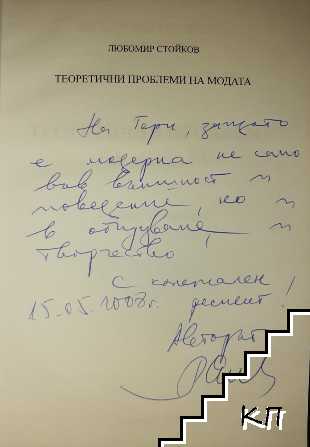 ЛЮБОМИР СТОЙКОВ
ТЕОРЕТИЧНИ ПРОБЛЕМИ НА МОДАТА
На Гари, защото
е модерна не само
във външност и
поведение, но и
в общуване и
творчество,
С колегиален
15.05.2008г. респект!
Авторът
К.П